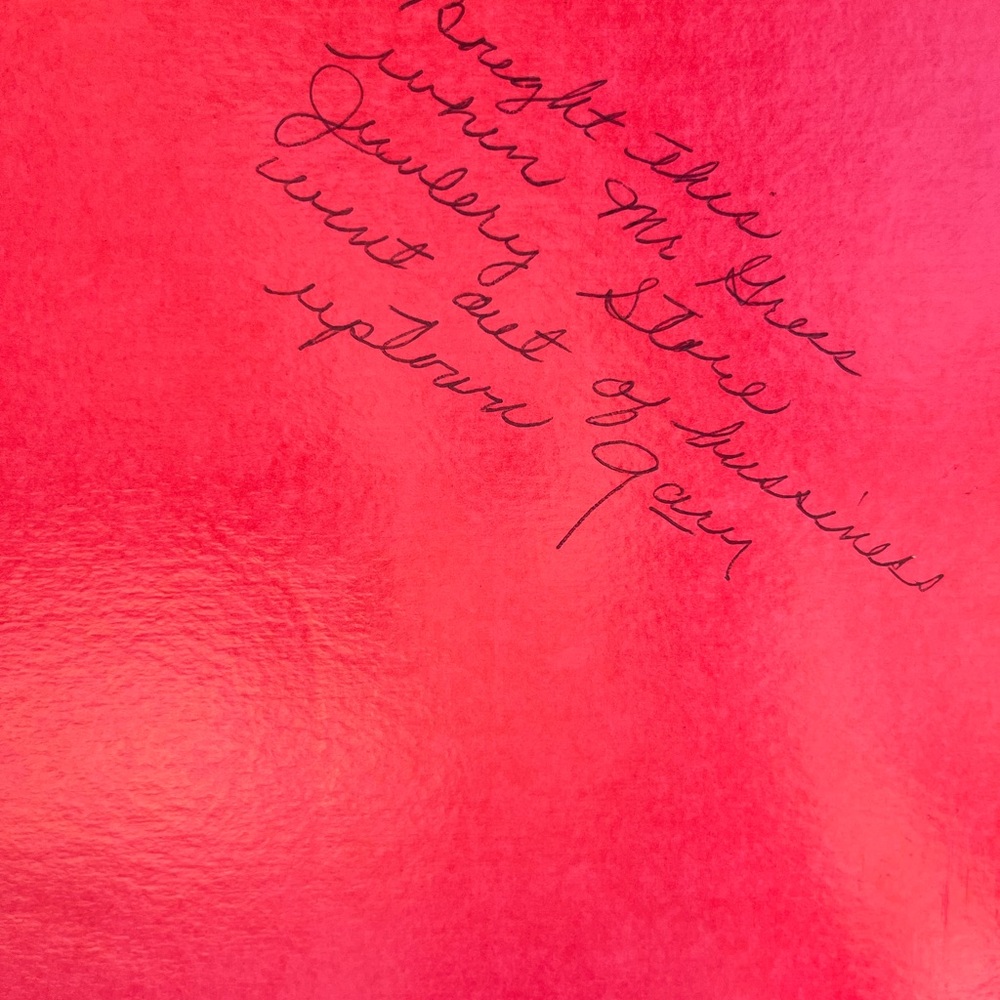 Bought this
when Mr
Jewlery Store
went out of bussiness
uptown Gary